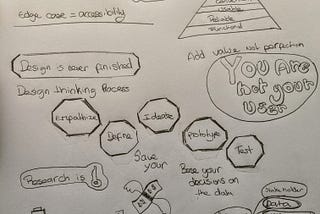 Edge case = accessibility
Usable
Reliable
Functional
Add value not perfection
Design is never finished
Design thinking Process
You Are
not your
user
Empathize
Define
Ideate
Prototype
Test
Save
your
Base your
decisions on
the data
Research is
Stakeholder
Data